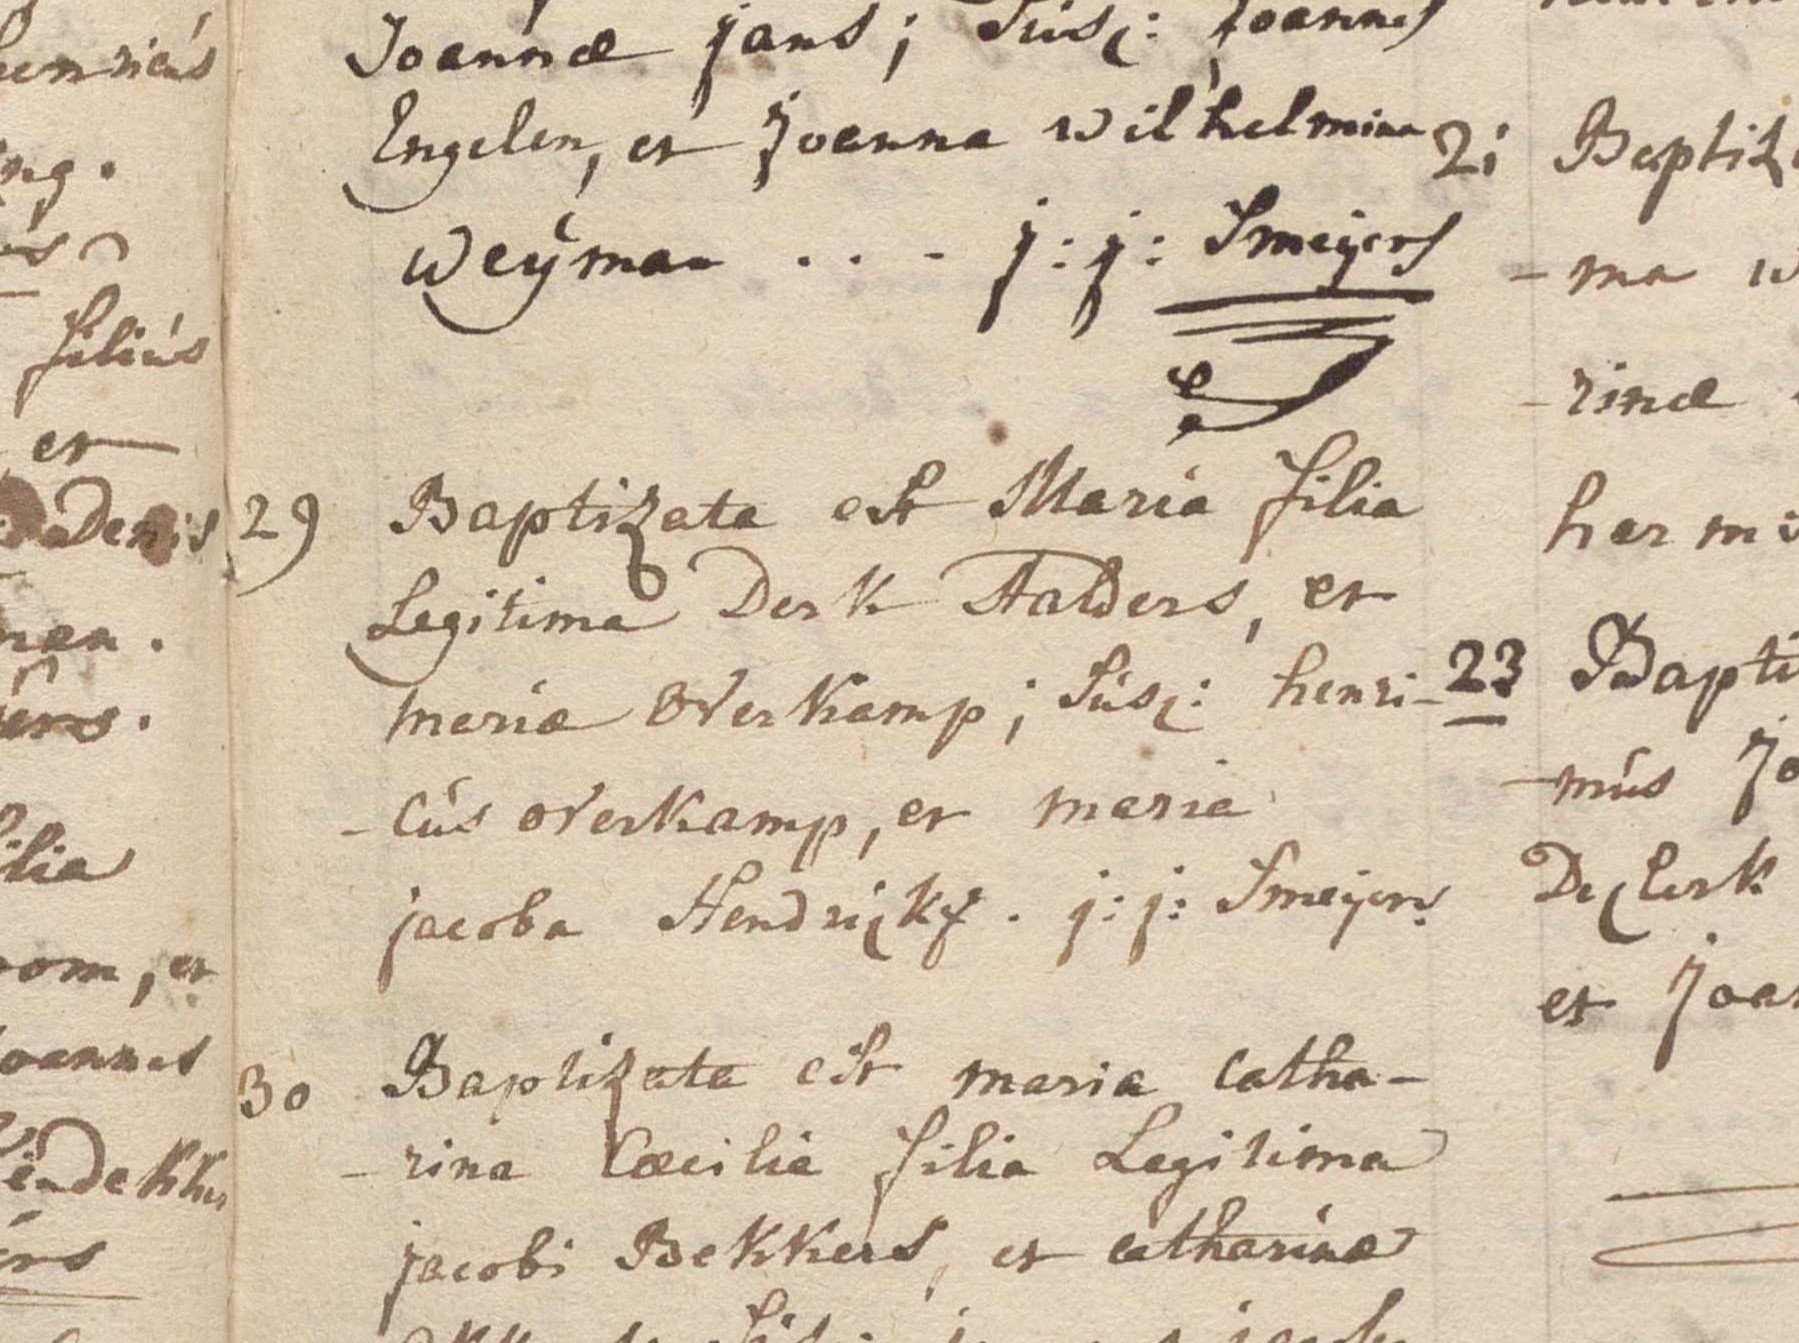 henricus
ng.
filius
er
Denis
man.
filia
rom, er
Joannes
ers
Joannæ jans; Sús¿: Joannes
Engelen, er Joanna wilhelmina
weÿman . . . j: j: Smeijers
29 Baptizata est Maria filia
Legitima Derk Aalders, er
mariæ overkamp; Sús¿: henri-
-cús overkamp, er maria
jacoba Hendricks. j: j: Smeijers
30 Baptizata est maria catha-
-rina Cæcilia filia Legitima
jacobi Bekkers, er catharinæ
21 Baptiz
-ma w
-rinæ
harmi
23 Bapti
-mús Jo
De Clerk
er Joan